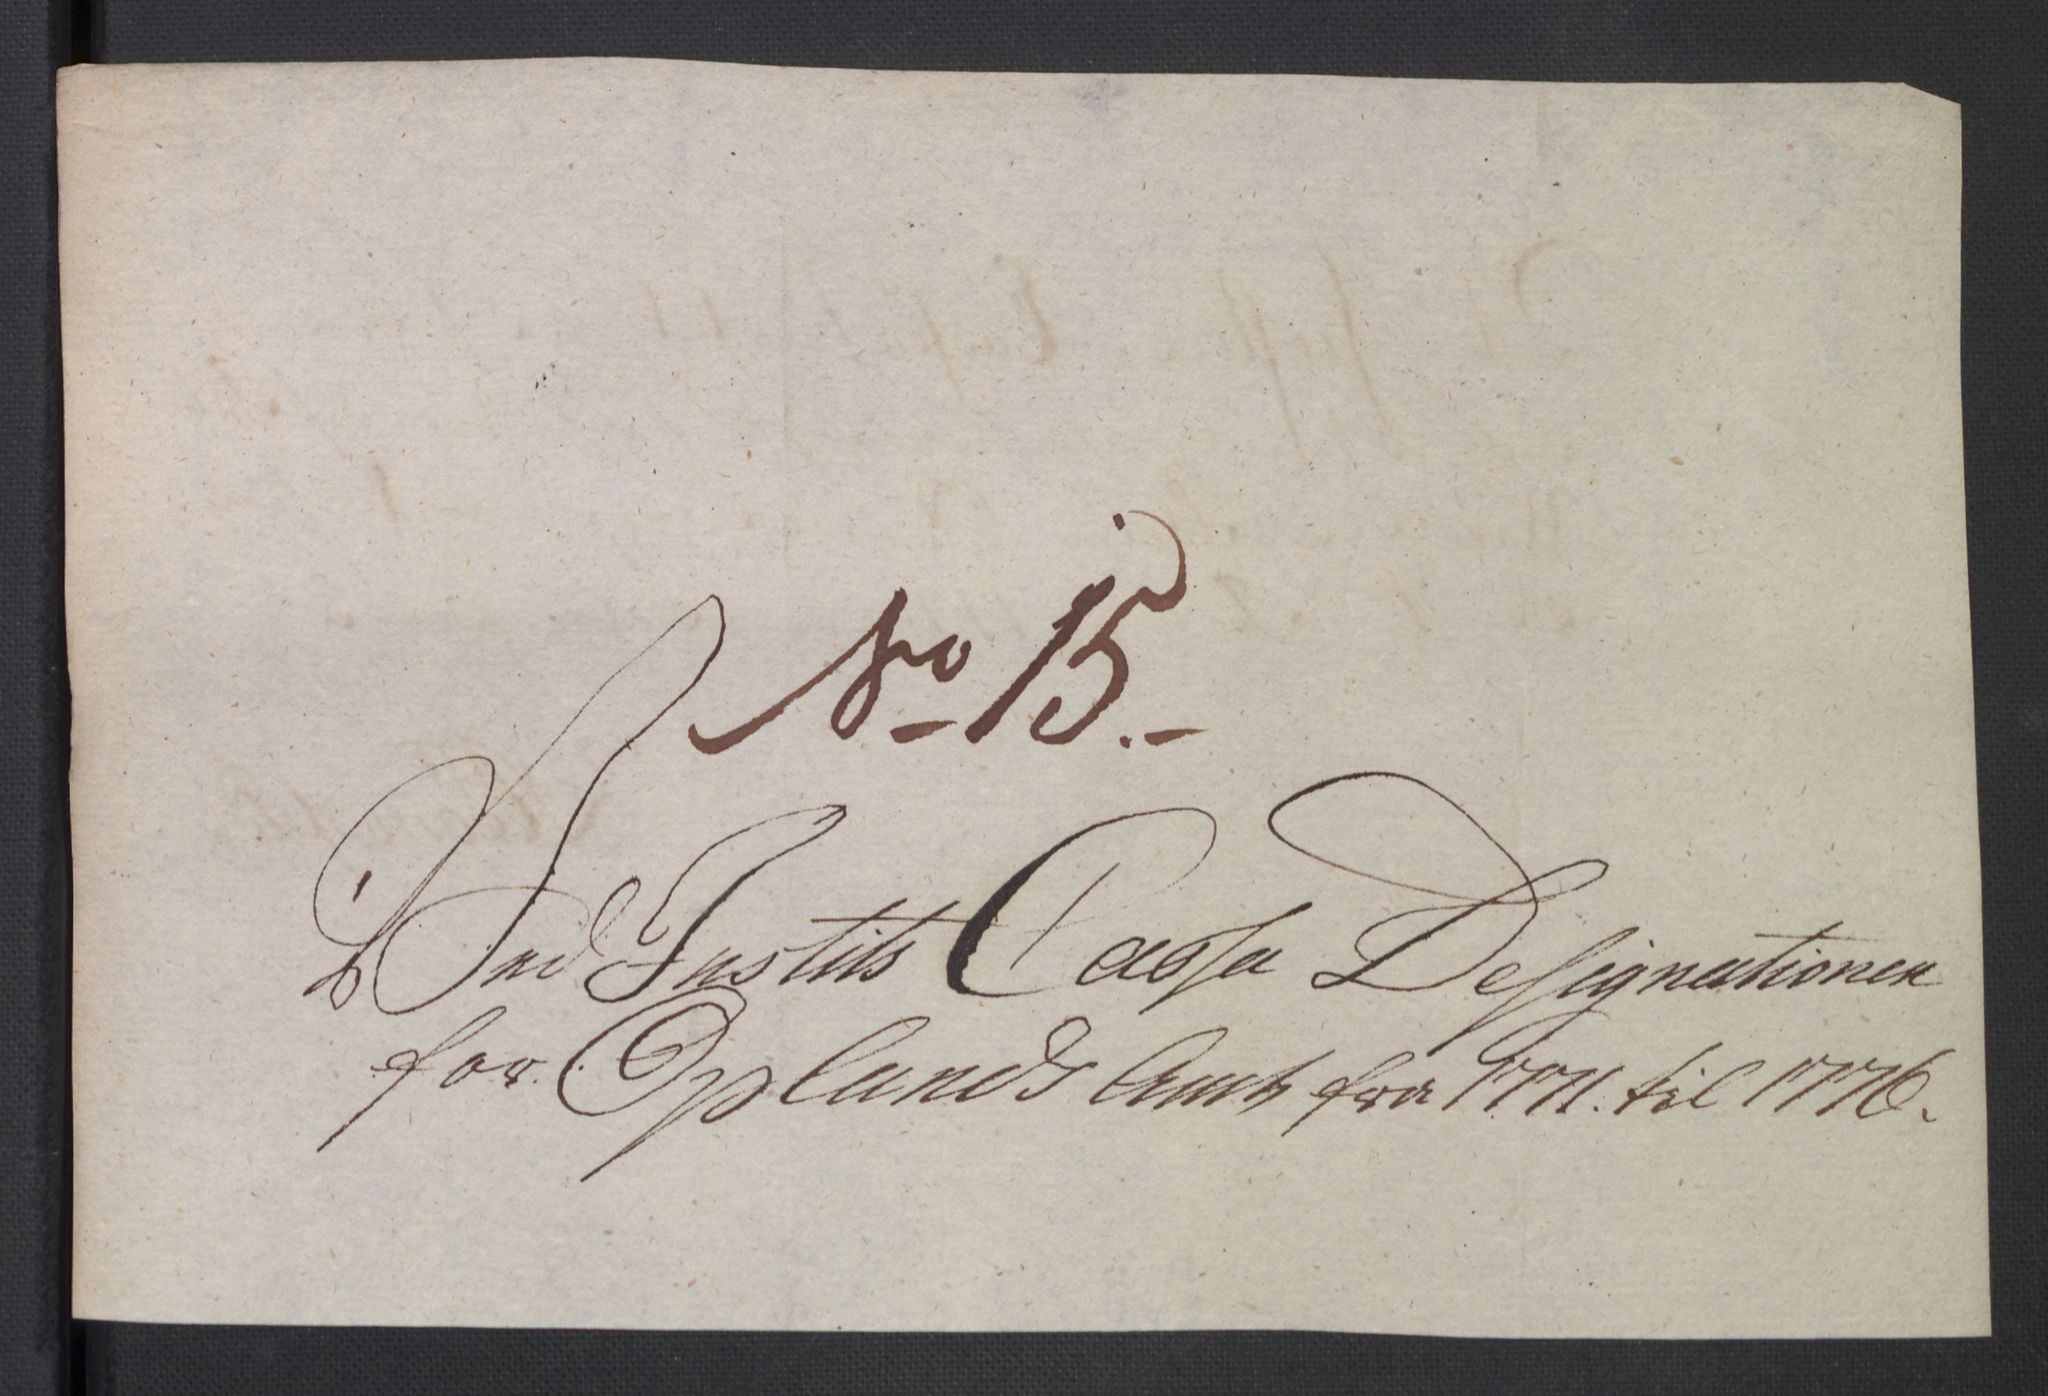 No 15.
Justits Cassa Designationer
for Oplands Amt fra 1771. til 1776.